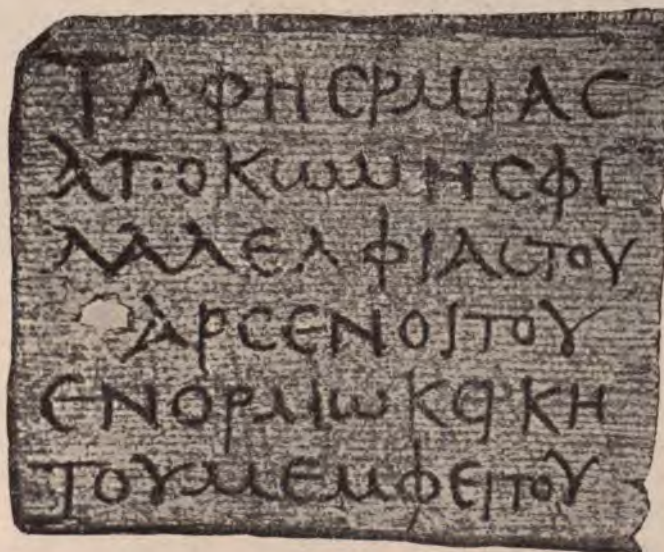 ΤΑΦΗ ΕΡΜΙΑϹ
ΑΠΟ ΚΩΜΗϹ ΦΙ
ΛΑΔΕΛΦΙΑϹ ΤΟΥ
ΑΡϹΕΝΟΙΤΟΥ
ΕΝ ΟΡΜΩ ΚΕΡΚΗ
ΤΟΥ ΜΕΜΦΕΙΤΟΥ